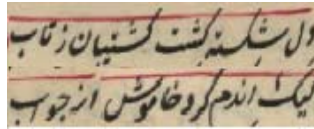 دل شکسته گشت کشتیبان ز تاب
لیک اندم کرد خاموش از جواب